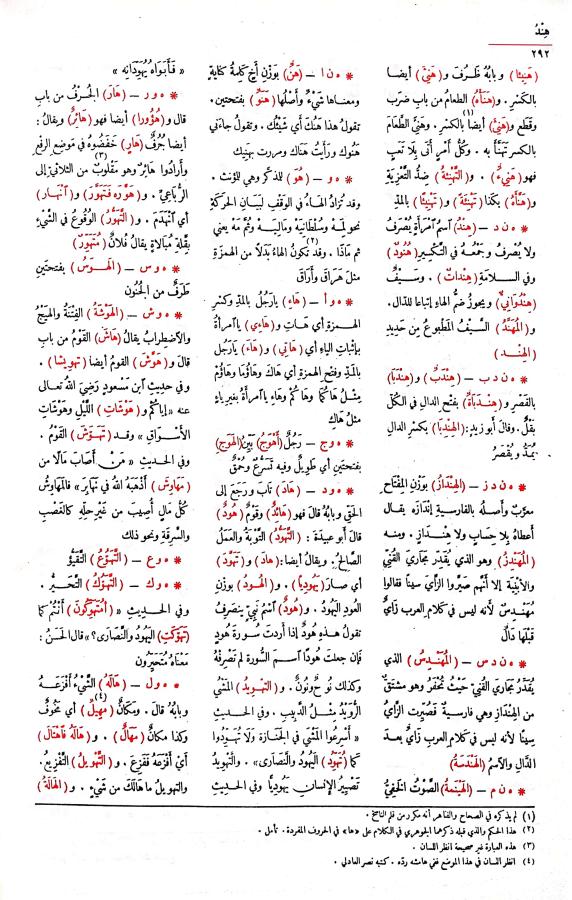 هِنْدُ
٢٩٢
(هَنِيئا) وبابُه ظَرُفَ و(هَنِئَ) أيضا
بالكسْرِ . و(هَنَأَهُ) الطعامُ من باب ضرَب
وقَطع و(هَنِئَ) أيضاً(١) بالكسر . وهَنِئَ الطَّعامَ
بالكسر تهنَّأَ به . وكُلُّ أمرٍ أتَى بِلا تَعَبٍ
فهو (هَنِيءٌ) . و(التَّهْنِئَةُ) ضِدُّ التَّعْزِيَةِ
و(هَنَّأهُ) بكذا (تَهْنِئَةً) و(تَهْنِيئًا) بالمدِّ
* ه ن د – (هِنْدُ) اسْمُ امْرأةٍ يُصْرَفُ
ولا يُصْرَفُ وجَمْعُهُ في التَّكْسِيرِ (هُنُودٌ)
وفي السلامَةِ (هِنْدَاتٌ) . وسَيْفٌ
(هِنْدُوَانِيٌّ) ويجوزُ ضَمُّ الهاءِ إتباعا للدَّالِ .
و(المُهَنَّدُ) السَّيْفُ المَطْبُوعُ من حَدِيدِ
(الهِنْدِ)
* ه ن د ب – (هِنْدَبٌ) و(هِنْدَبَا)
بالقَصْرِ و(هِنْدَبَاةٌ) بفَتْحِ الدالِ في الكُلِّ
بَقْلٌ . وقال أبو زيدٍ: (الهِنْدِبَا) بكسْرِ الدالِ
يُمَدُّ ويُقْصَرُ
* ه ن د ز – (الهِنْدَازُ) بوَزْنِ المِفْتَاحِ
معرَّبٌ وأصلُه بالفارسية اندازه يقالُ
أعطاهُ بِلا حِسابٍ ولا هِنْدَازٍ . ومنه
(المُهَنْدِزُ) وهو الذي يُقَدِّرُ مجَارِيَ القُنِيِّ
والأبْنِيَةِ إلّا أنَّهم صَيَّرُوا الزَّايَ سينًا فقالوا
مُهَنْدِسٌ لأنه ليس في كلام العرب زايٌ
قَبْلَهَا دالٌ
* ه ن د س – (المُهَنْدِسُ) الذي
يُقَدِّرُ مَجاري القُنِيِّ حَيْثُ تُحْفَرُ وهو مشتَقٌّ
من الهِنْدَازِ وهي فارسيةٌ فَصُيِّرَتِ الزَّايُ
سينًا لأنه ليس في كلام العرب زايٌ بعد
الدَّالِ والاسْمُ (الهَنْدَسَةُ)
* ه ن م – (الهَيْنَمَةُ) الصَّوْتُ الخَفِيُّ
* ه ن ا – (هَنٌ) بوَزْنِ أَخٍ كَلِمةُ كنايةٍ
ومعناها شَيْءٌ وأَصْلُها (هَنَوٌ) بفتحتين .
تقولُ هذا هَنُكَ أي شَيْئُكَ . وتقولُ جاءَني
هَنُوكَ ورأيتُ هَنَاكَ ومررت بهَنِيكَ
* ه و – (هُوَ) للمُذكَّرِ وهي للمؤنث .
وقد تُزادُ الهَاءُ في الوَقْفِ لبَيَانِ الحَرَكَةِ
نحوُ لِمَهْ وسُلْطَانِيَهْ ومَالِيَهْ وثُمَّ مَهْ يعني
ثم ماذا(٢) . وقد تكونُ الهاءُ بَدَلًا من الهمزةِ
مثل هَرَاقَ وأراقَ
* ه و أ – (هَاءِ) يا رجُلُ بالمدِّ وكسْرِ
الهمزةِ أي هَاتِ و(هَاءِي) يا امرأةُ
بإثباتِ الياءِ أي (هَاتِي) و(هَاءَ) يا رَجُلُ
بالمدِّ وفتْحِ الهمزةِ أي هَاكَ وهَاؤُمَا وهَاؤُمُ
مِثْلُ هَاكُمَا وهَاكُم وهَاءِ يا امرأةُ بغيرِ ياءٍ
مثل هَاكِ
* ه و ج – رَجُلٌ (أَهْوَجُ) بَيِّنُ (الهَوَجِ)
بفتحتين أي طَوِيلٌ وفيه تَسَرُّعٌ وحُمْقٌ
* ه و د – (هَادَ) تَابَ ورَجَعَ إلى
الحَقِّ وبابُه قال فهو (هَائِدٌ) وقَوْمٌ (هُودٌ)
قال أبو عبيدة : (التَّهَوُّدُ) التَّوْبَةُ والعَمَلُ
الصَّالِحُ . ويقالُ أيضا: (هادَ) و(تَهَوَّدَ)
أي صارَ (يَهُودِيًّا) . و(الهُودُ) بوزنِ
العُودِ اليَهُودُ . و(هُودٌ) اسْمُ نَبِيٍّ يَنصَرِفُ
تقولُ هذهِ هُودٌ إذا أردتَ سُورةَ هُودٍ
فإن جعلتَ هُودًا اسمَ السُّورةِ لم تَصْرِفْهُ
وكذلك نُوحٌ ونُونٌ . و(التَّهْوِيدُ) المَشْيُ
الرُّوَيْدُ مِثْلُ الدَّبِيبِ . وفي الحديثِ
«أَسْرِعُوا المَشْيَ في الجَنَازةِ ولَا تُهَوِّدُوا
كما (تُهَوِّدُ) اليَهُودُ والنَّصَارَى» . والتَّهْوِيدُ
تَصْيِيرُ الإنسانِ يَهُودِيًّا وفي الحديثِ
« فَأَبَوَاهُ يُهَوِّدَانِهِ »
* ه و ر – (هَارَ) الجُرُفُ من باب
قال و(هُؤُورا) أيضا فهو (هَائِرٌ) ويقالُ :
أيضا جُرُفٌ (هَارٍ) خَفَضُوه في مَوضِعِ الرفعِ
وأَرادُوا هَائِرٌ وهو مقْلُوبٌ(٣) من الثلاثيِّ إلى
الرُّباعيِّ . و(هَوَّرَه فَتَهَوَّرَ) و(انْهَارَ)
أي انْهَدَمَ . و(التَّهَوُّرُ) الوُقُوعُ في الشيءِ
بقِلَّةِ مبالاةٍ يقالُ فلانٌ (مُتَهَوِّرٌ)
* ه و س – (الهَوَسُ) بفتحتين
طَرَفٌ من الجُنُون
* ه و ش – (الهَوْشَةُ) الفِتْنَةُ والهَيْجُ
والاضطرابُ يقالُ (هَاشَ) القَوْمُ من باب
قال و(هَوَّشَ) القومُ أيضا (تهويشا) .
وفي حديثِ ابن مسعودٍ رَضِيَ اللهُ تعالى
عنه «إيَّاكُم و(هَوْشَاتِ) اللَّيْلِ وهَوْشَاتِ
الأَسْوَاقِ » وقد (تَهَوَّشَ) القَوْمُ .
وفي الحديثِ «مَنْ أَصَابَ مَالًا من
(مَهَاوِشَ) أَذْهَبَهُ اللهُ في نَهَابِرَ» فالمَهَاوِشُ
كُلُّ مَالٍ أُصِيبَ من غَيْرِ حِلِّهِ كالغَصْبِ
والسَّرِقَةِ ونحو ذلك
* ه و ع – (التَّهَوُّعُ) التَّقَيُّؤُ
* ه و ك – (التَّهَوُّكُ) التَّحَيُّرُ .
وفي الحديثِ « (أَمُتَهَوِّكُونَ) أَنْتُمْ كما
(تَهَوَّكَتِ) اليَهُودُ والنَّصَارَى؟» قال الحَسَنُ :
مَعْنَاهُ مُتَحَيِّرُونَ
* ه و ل – (هَالَهُ) الشَّيْءُ أَفْزَعَهُ
وبابُهُ قال . ومكَانٌ (مَهِيلٌ)(٤) أي مَخُوفٌ
وكذا مكانٌ (مَهَالٌ) . و(هَالَهُ فَاهْتَالَ)
أيْ أَفْزَعَهُ فَفَزِعَ . و(التَّهْوِيلُ) التَّفْزِيعُ .
والتهويلُ ما هالَكَ من شَيْءٍ . و(الهَالَةُ)
(١) لم يذكره في الصحاح والظاهر أنه مكرر من قلم الناسخ .
(٢) هذا الحكم والذي قبله ذكرهما الجوهري في الكلام على «ها» في الحروف المفردة . تأمل .
(٣) هذه العبارة غير صحيحة انظر اللسان .
(٤) انظر اللسان في هذا الموضع ففي هامشه ردّه . كتبه نصر العادلي .